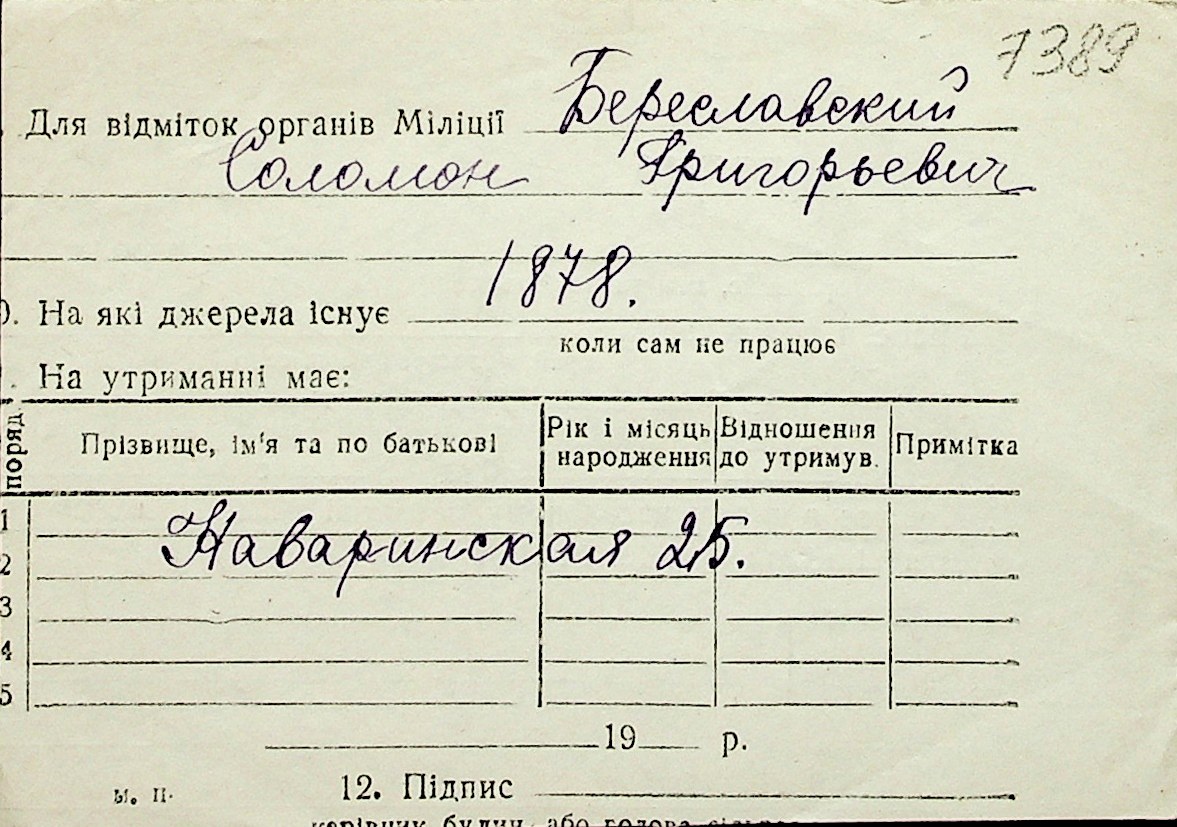 7389
. Для відміток органів Міліції Береславский
Соломон Григорьевич
1878.
0. На які джерела існує
коли сам не працює
. На утриманні має:
поряд. Прізвище, ім'я та по батькові Рік і місяць народження Відношення до утримув. Примітка
1
Наваринская 25.
2
3
4
5
19 р.
М. П. 12. Підпис
керівник будин. або голова